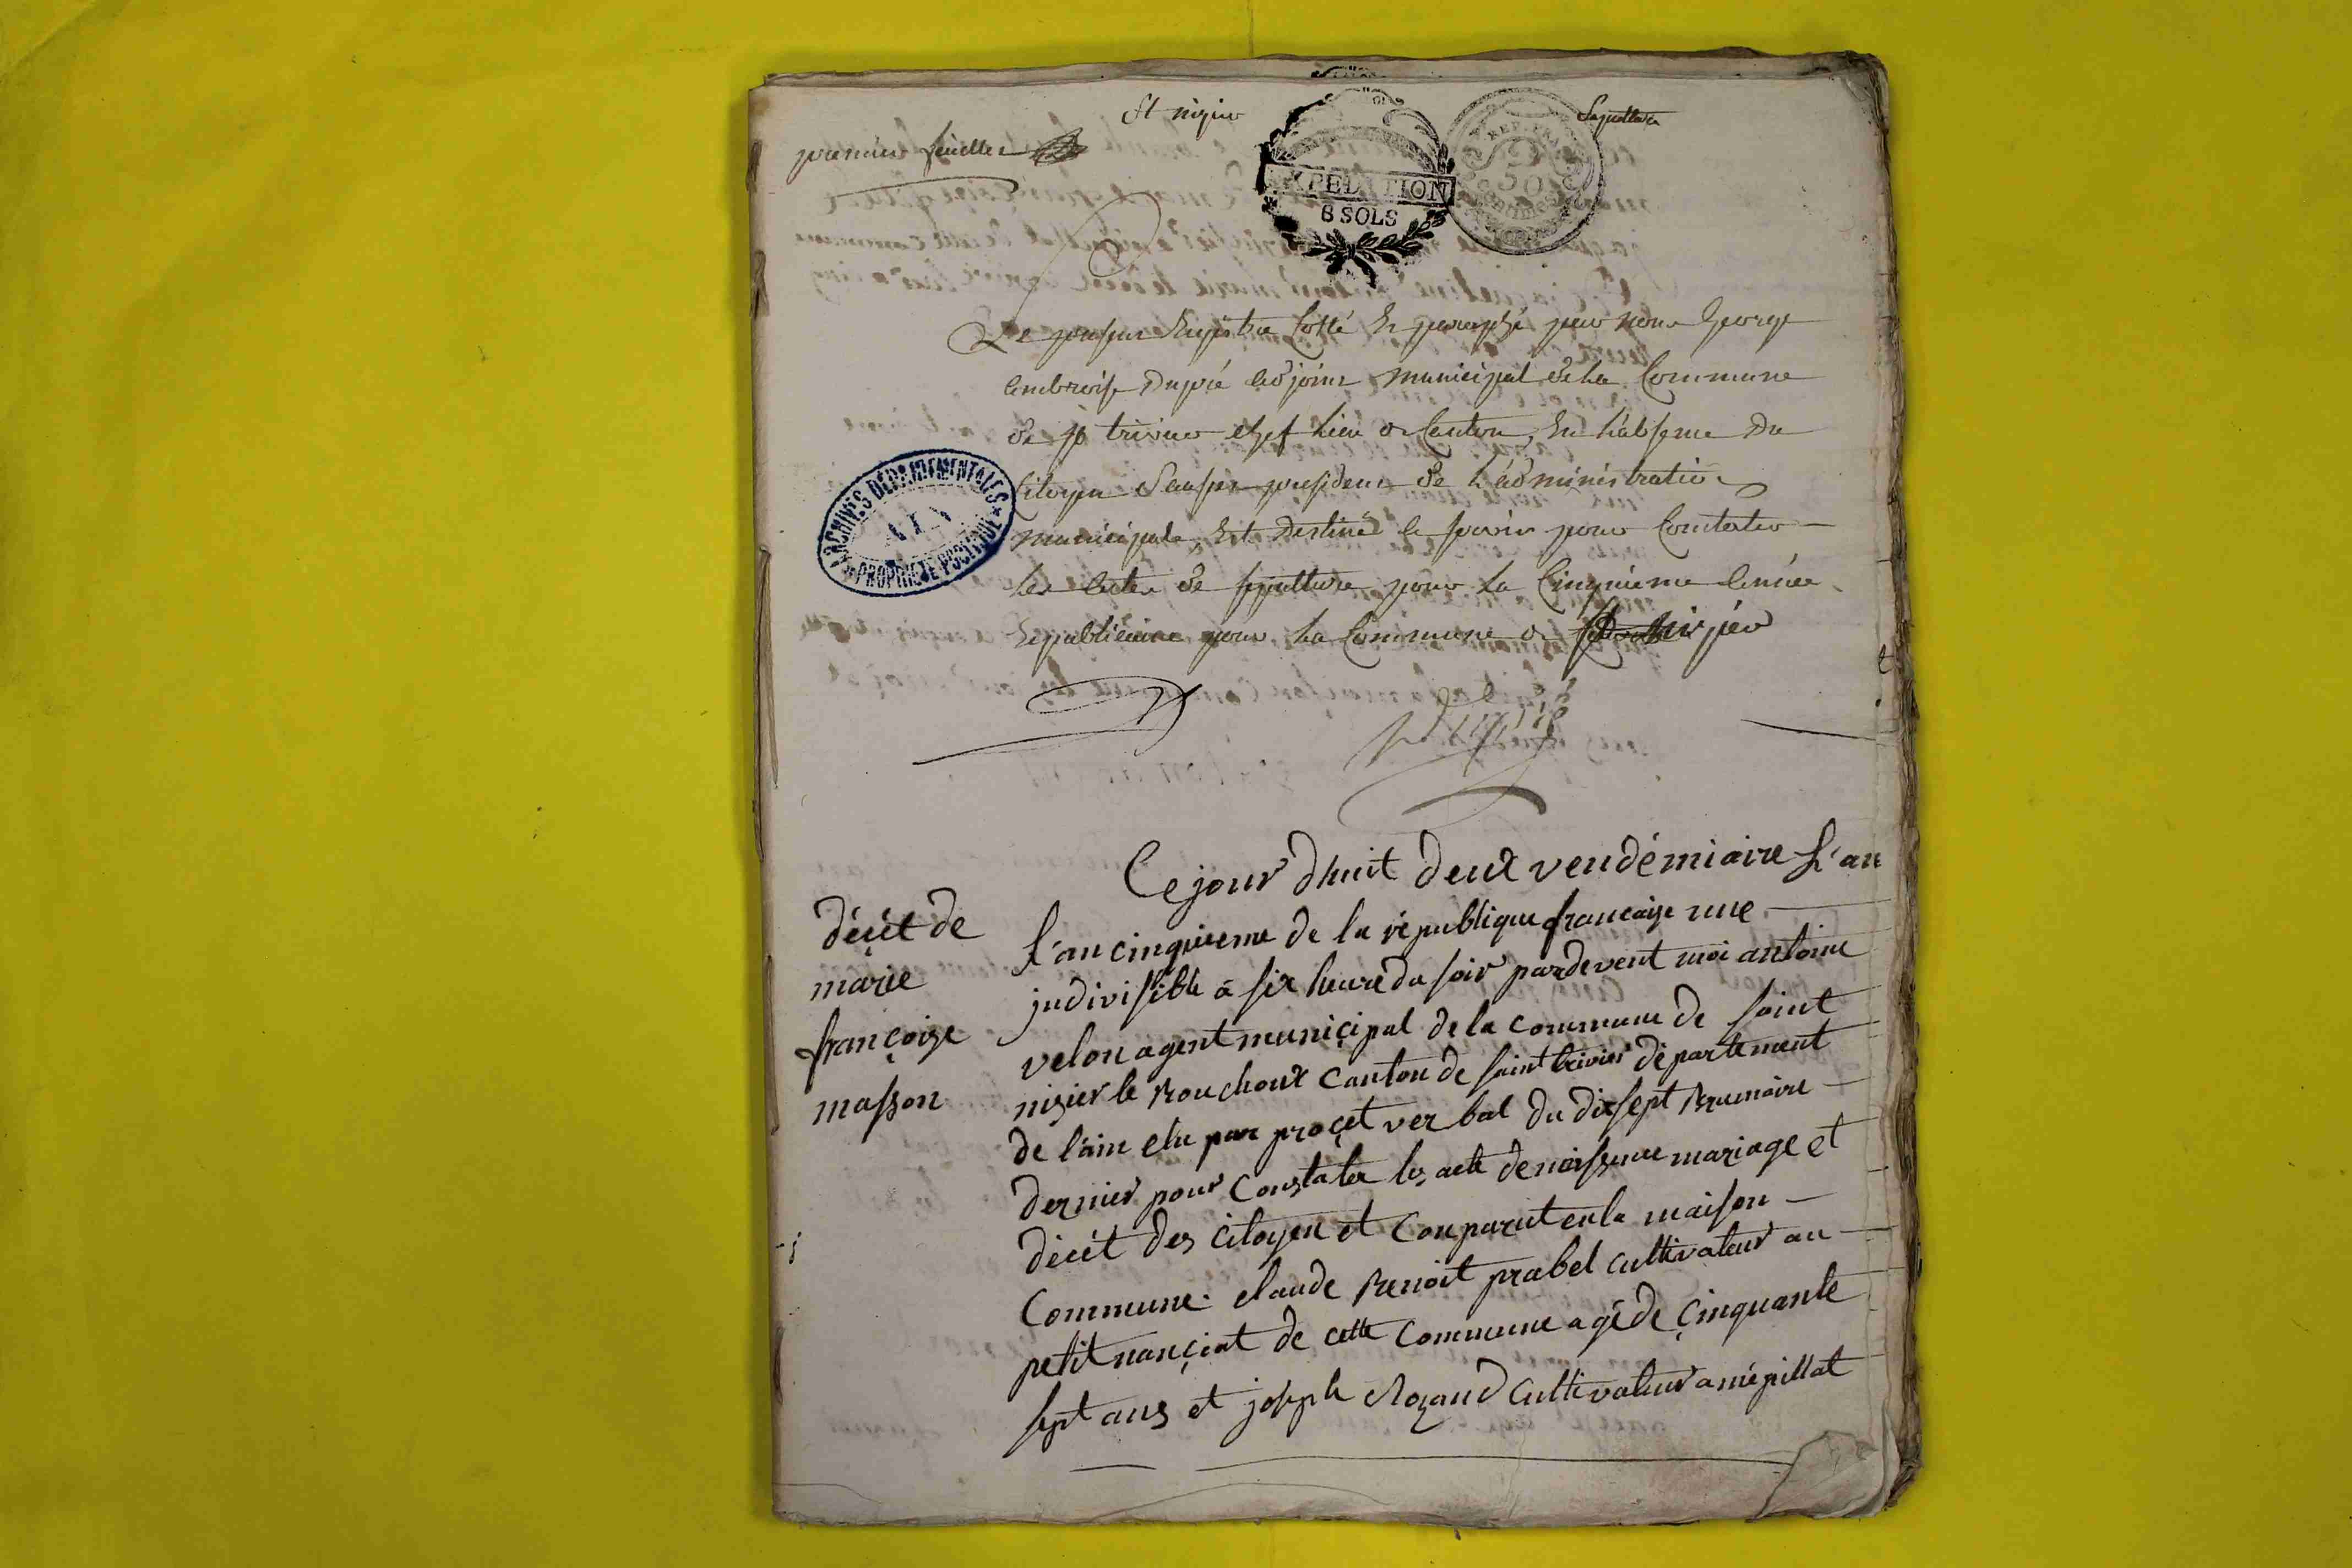 St nizier
Sepulture
premier feuillet
EXPEDITION
8 SOLS
REP. FRA.
50
centimes
Le present Registre Cotté Et paraphé par nous George
ambroise Dupré adjoint municipal de la Commune
de St trivier chef lieu de Canton, En l'absence du
Citoyen president de l'administration
municipale, Est Destiné a servir pour Constater
les actes de sepulture pour la Cinquieme année
Republicaine pour la Commune de nizier
Dupré
ARCHIVES DÉPARTEMENTALES
AIN
PROPRIÉTÉ PUBLIQUE
décét de
marie
françoise
masson
Ce jour dhuit deux vendémiaire L'an
L'an cinquieme de la république francaise une
jndivisible a six heure du soir pardevent moi antoine
velon agent municipal de la commune de saint
nizier le Bouchoux canton de saint trivier département
de l'ain elu par proçet verbal du dixsept Brumaire
dernier pour constater les acte de naissance mariage et
décét des citoyen et conparut en la maison
Commune. claude Benoit prabel cultivateur au
petit nançiat de cette commune agé de çinquante
sept ans et joseph Rozand cultivateur a mépillat